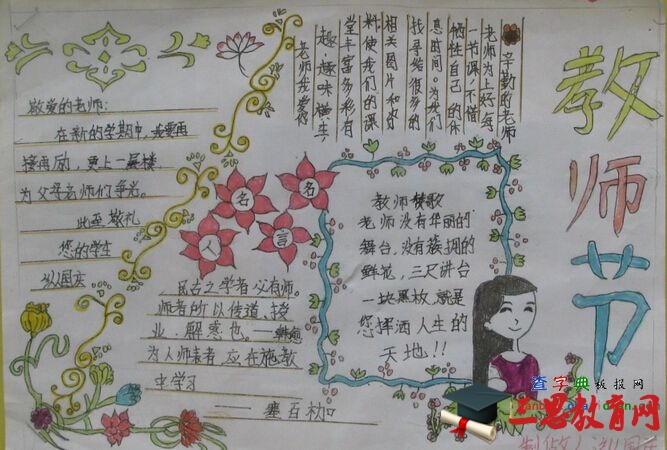 教师节
辛勤的老师
老师为上好每
一节课,不惜
牺牲自己的休
息时间。为我们
找寻给很多的
相关图片和资
料使我们的课
堂丰富多彩有
趣,趣味横生,
老师我爱你
敬爱的老师:
在新的学期中,我要再
接再励,更上一层楼
为父母老师们争光。
此至敬礼
您的学生
名人名言
民古之学者必有师。
师者所以传道,授
业,解惑也。——韩愈
为人师表者,应在施教
中学习
——塞百枞
教师赞歌
老师没有华丽的
舞台,没有簇拥的
鲜花,三尺讲台
一块黑板,就是
您挥洒人生的
天地!!
查字典板报网
三思教育网
制做人